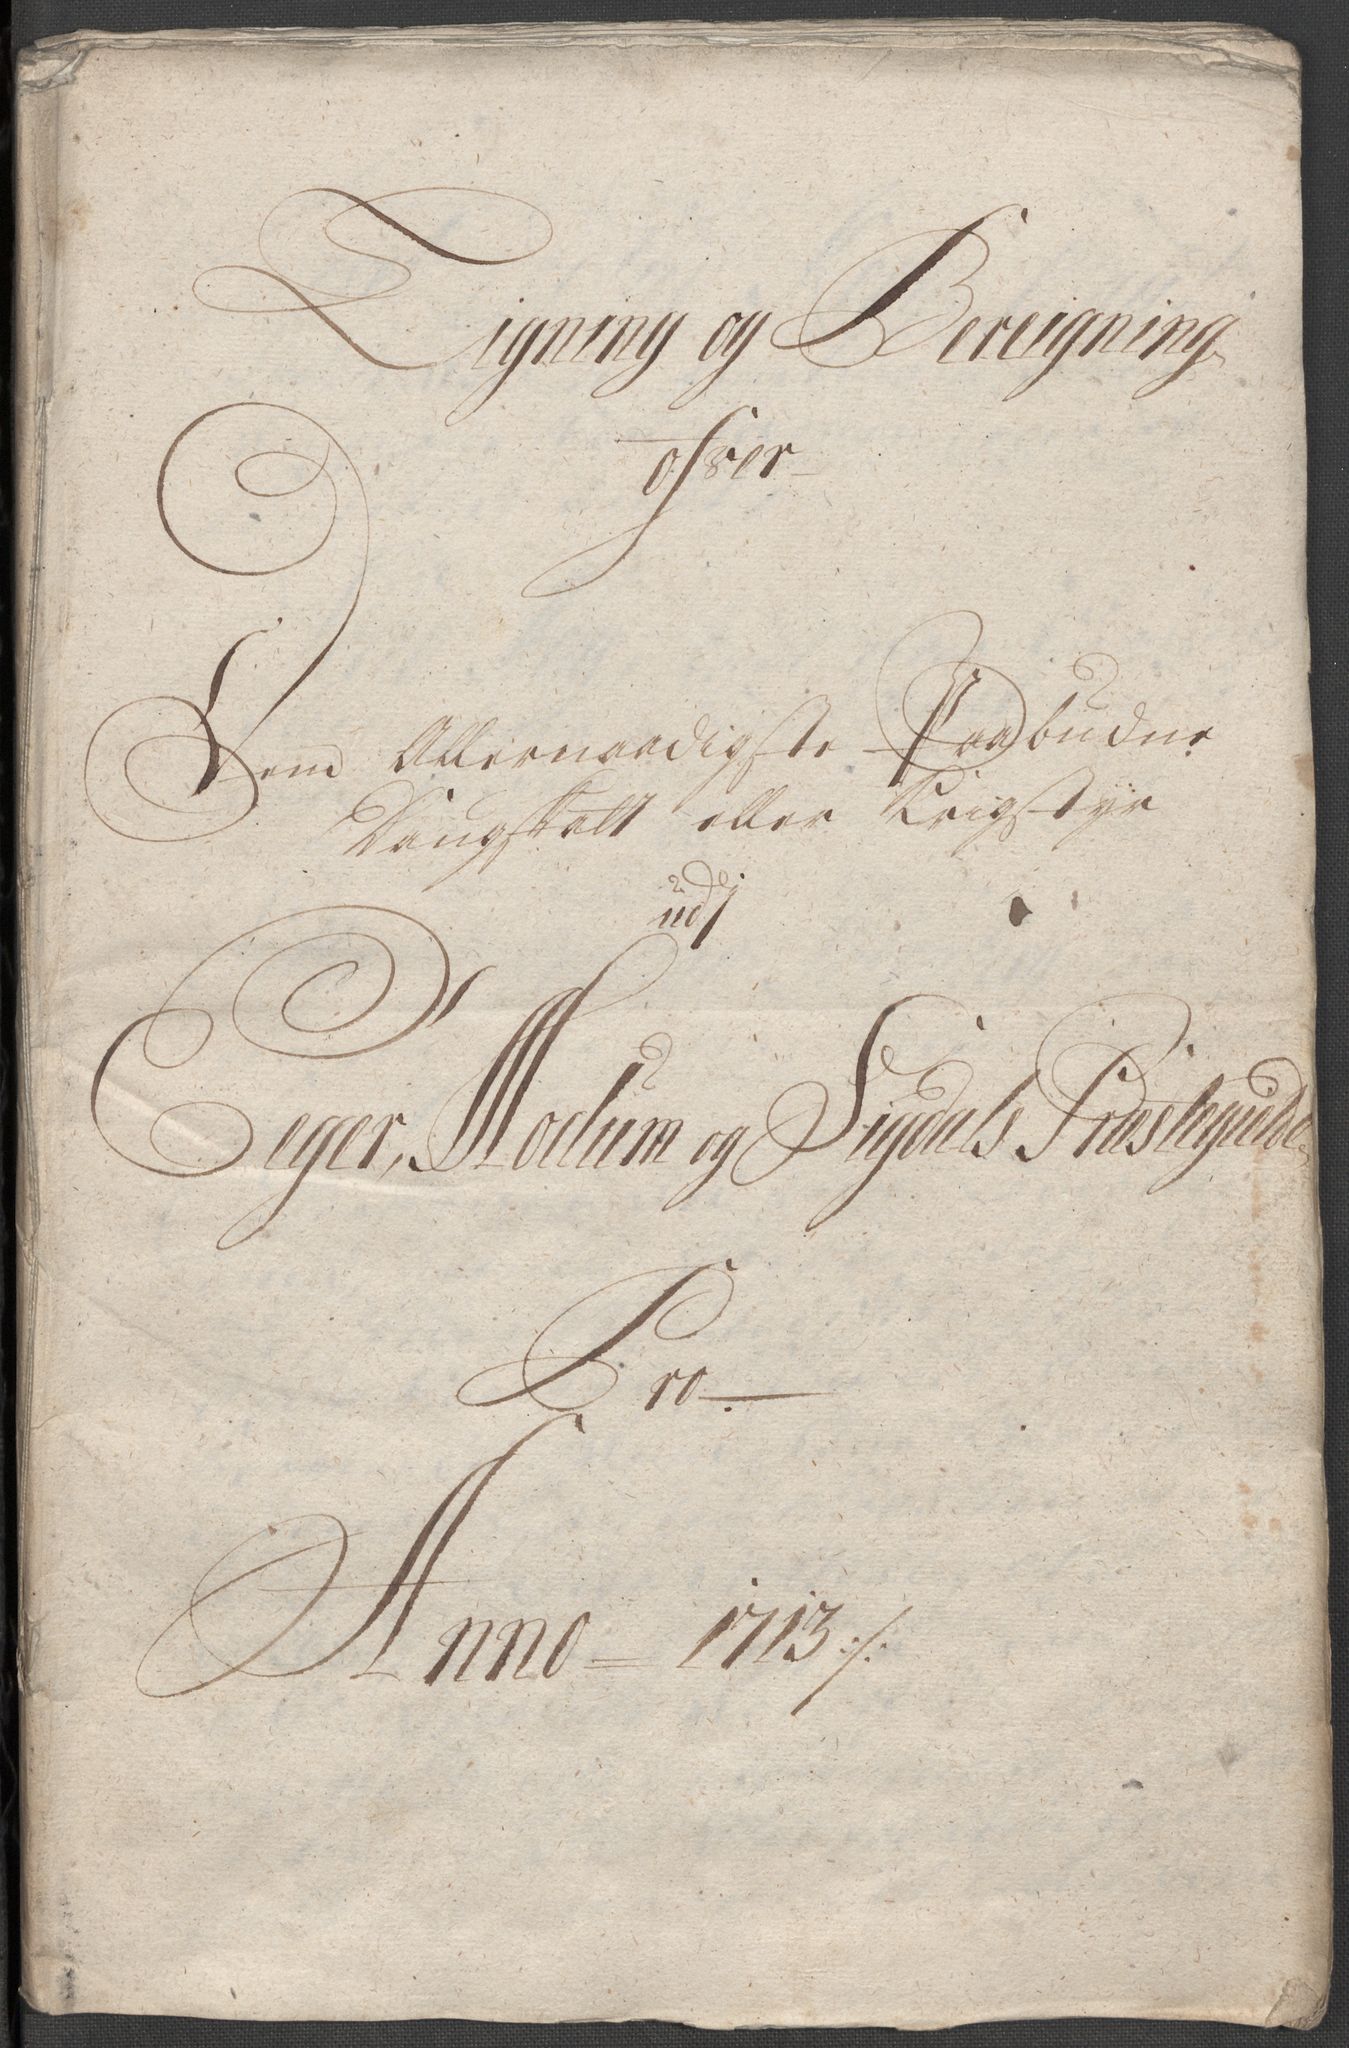 Ligning og Bereigning
ofver
Dem Allernaadigste Paabudne
Dangskatt eller Krigstyr
udj
Eger, Modum og Sigdals Præstegield
Pro
Anno = 1713 ./.